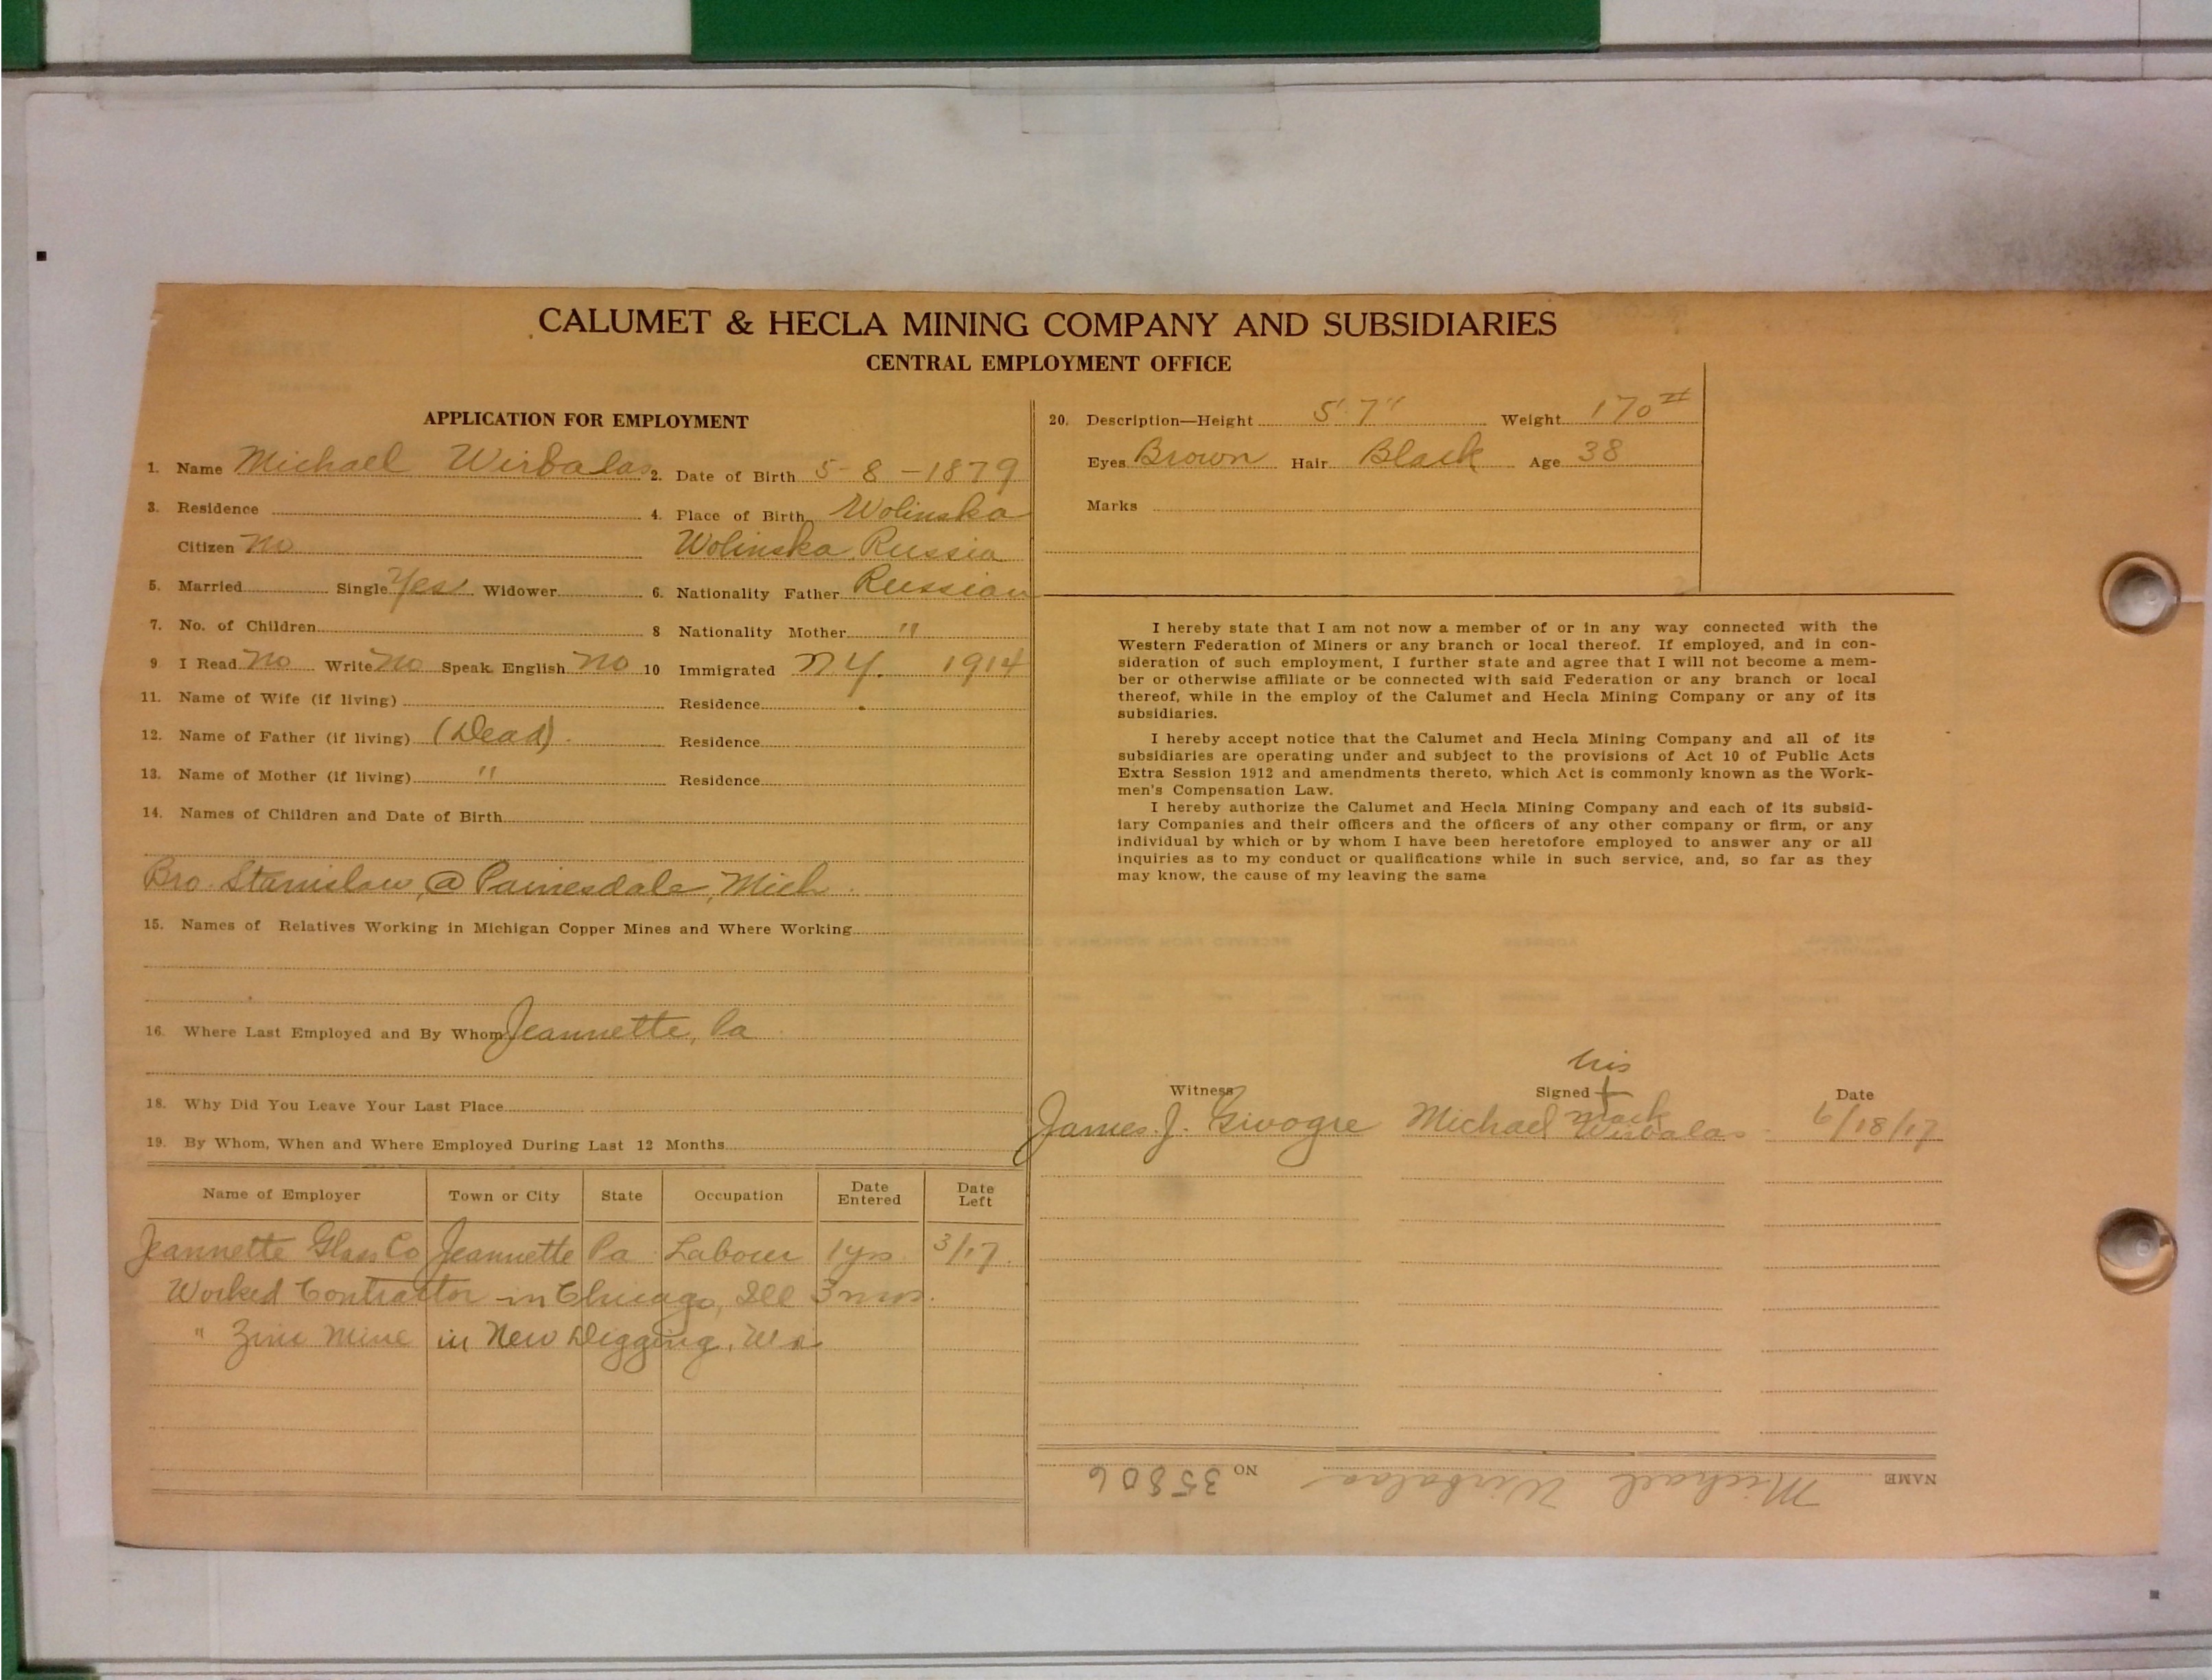 CALUMET & HECLA MINING COMPANY AND SUBSIDIARIES
CENTRAL EMPLOYMENT OFFICE
APPLICATION FOR EMPLOYMENT
1. Name Michael Wirbalas 2. Date of Birth 5-8-1879
3. Residence 4. Place of Birth Wolinska
Citizen No Wolinska Russia
5. Married Single Yes Widower 6. Nationality Father Russian
7. No. of Children 8 Nationality Mother "
9 I Read No Write No Speak English No 10 Immigrated N.Y. 1914
11. Name of Wife (if living) Residence
12. Name of Father (if living) (Dead) Residence
13. Name of Mother (if living) " Residence
14. Names of Children and Date of Birth
Bro. Stanislaw, @ Painesdale, Mich.
15. Names of Relatives Working in Michigan Copper Mines and Where Working
16. Where Last Employed and By Whom Jeannette, Pa
18. Why Did You Leave Your Last Place
19. By Whom, When and Where Employed During Last 12 Months
Name of Employer Town or City State Occupation Date Entered Date Left
Jeannette Glass Co Jeannette Pa Labour 1 yrs 3/17.
Worked Contractor in Chicago, Ill 3 mos.
" Zinc Mine in New Digging, Wis
20. Description—Height 5' 7" Weight 170#
Eyes Brown Hair Black Age 38
Marks
I hereby state that I am not now a member of or in any way connected with the
Western Federation of Miners or any branch or local thereof. If employed, and in con-
sideration of such employment, I further state and agree that I will not become a mem-
ber or otherwise affiliate or be connected with said Federation or any branch or local
thereof, while in the employ of the Calumet and Hecla Mining Company or any of its
subsidiaries.
I hereby accept notice that the Calumet and Hecla Mining Company and all of its
subsidiaries are operating under and subject to the provisions of Act 10 of Public Acts
Extra Session 1912 and amendments thereto, which Act is commonly known as the Work-
men's Compensation Law.
I hereby authorize the Calumet and Hecla Mining Company and each of its subsid-
iary Companies and their officers and the officers of any other company or firm, or any
individual by which or by whom I have been heretofore employed to answer any or all
inquiries as to my conduct or qualifications while in such service, and, so far as they
may know, the cause of my leaving the same
his
Witness Signed + Date
mark
James J. Givogre Michael Wirbalas 6/18/17
NAME Michael Wirbalas NO 35806